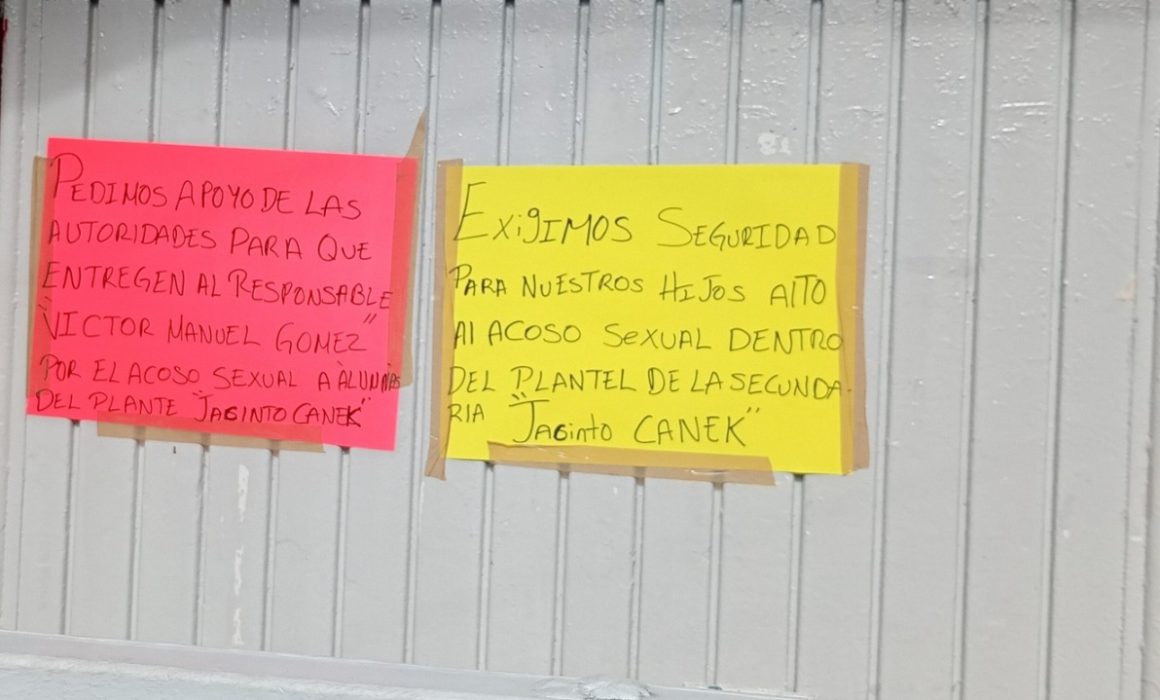 PEDIMOS APOYO DE LAS
AUTORIDADES PARA QUE
ENTREGEN AL RESPONSABLE
"VICTOR MANUEL GOMEZ"
POR EL ACOSO SEXUAL A ALUMNAS
DEL PLANTE "JACINTO CANEK"
ExigIMOS SEGURIDAD
PARA NUESTROS HIJOS AlTO
Al ACOSO SeXUAL DENTRO
DEL PLANTEL DE LA SECUNDA-
RIA "JACinto CANEK"